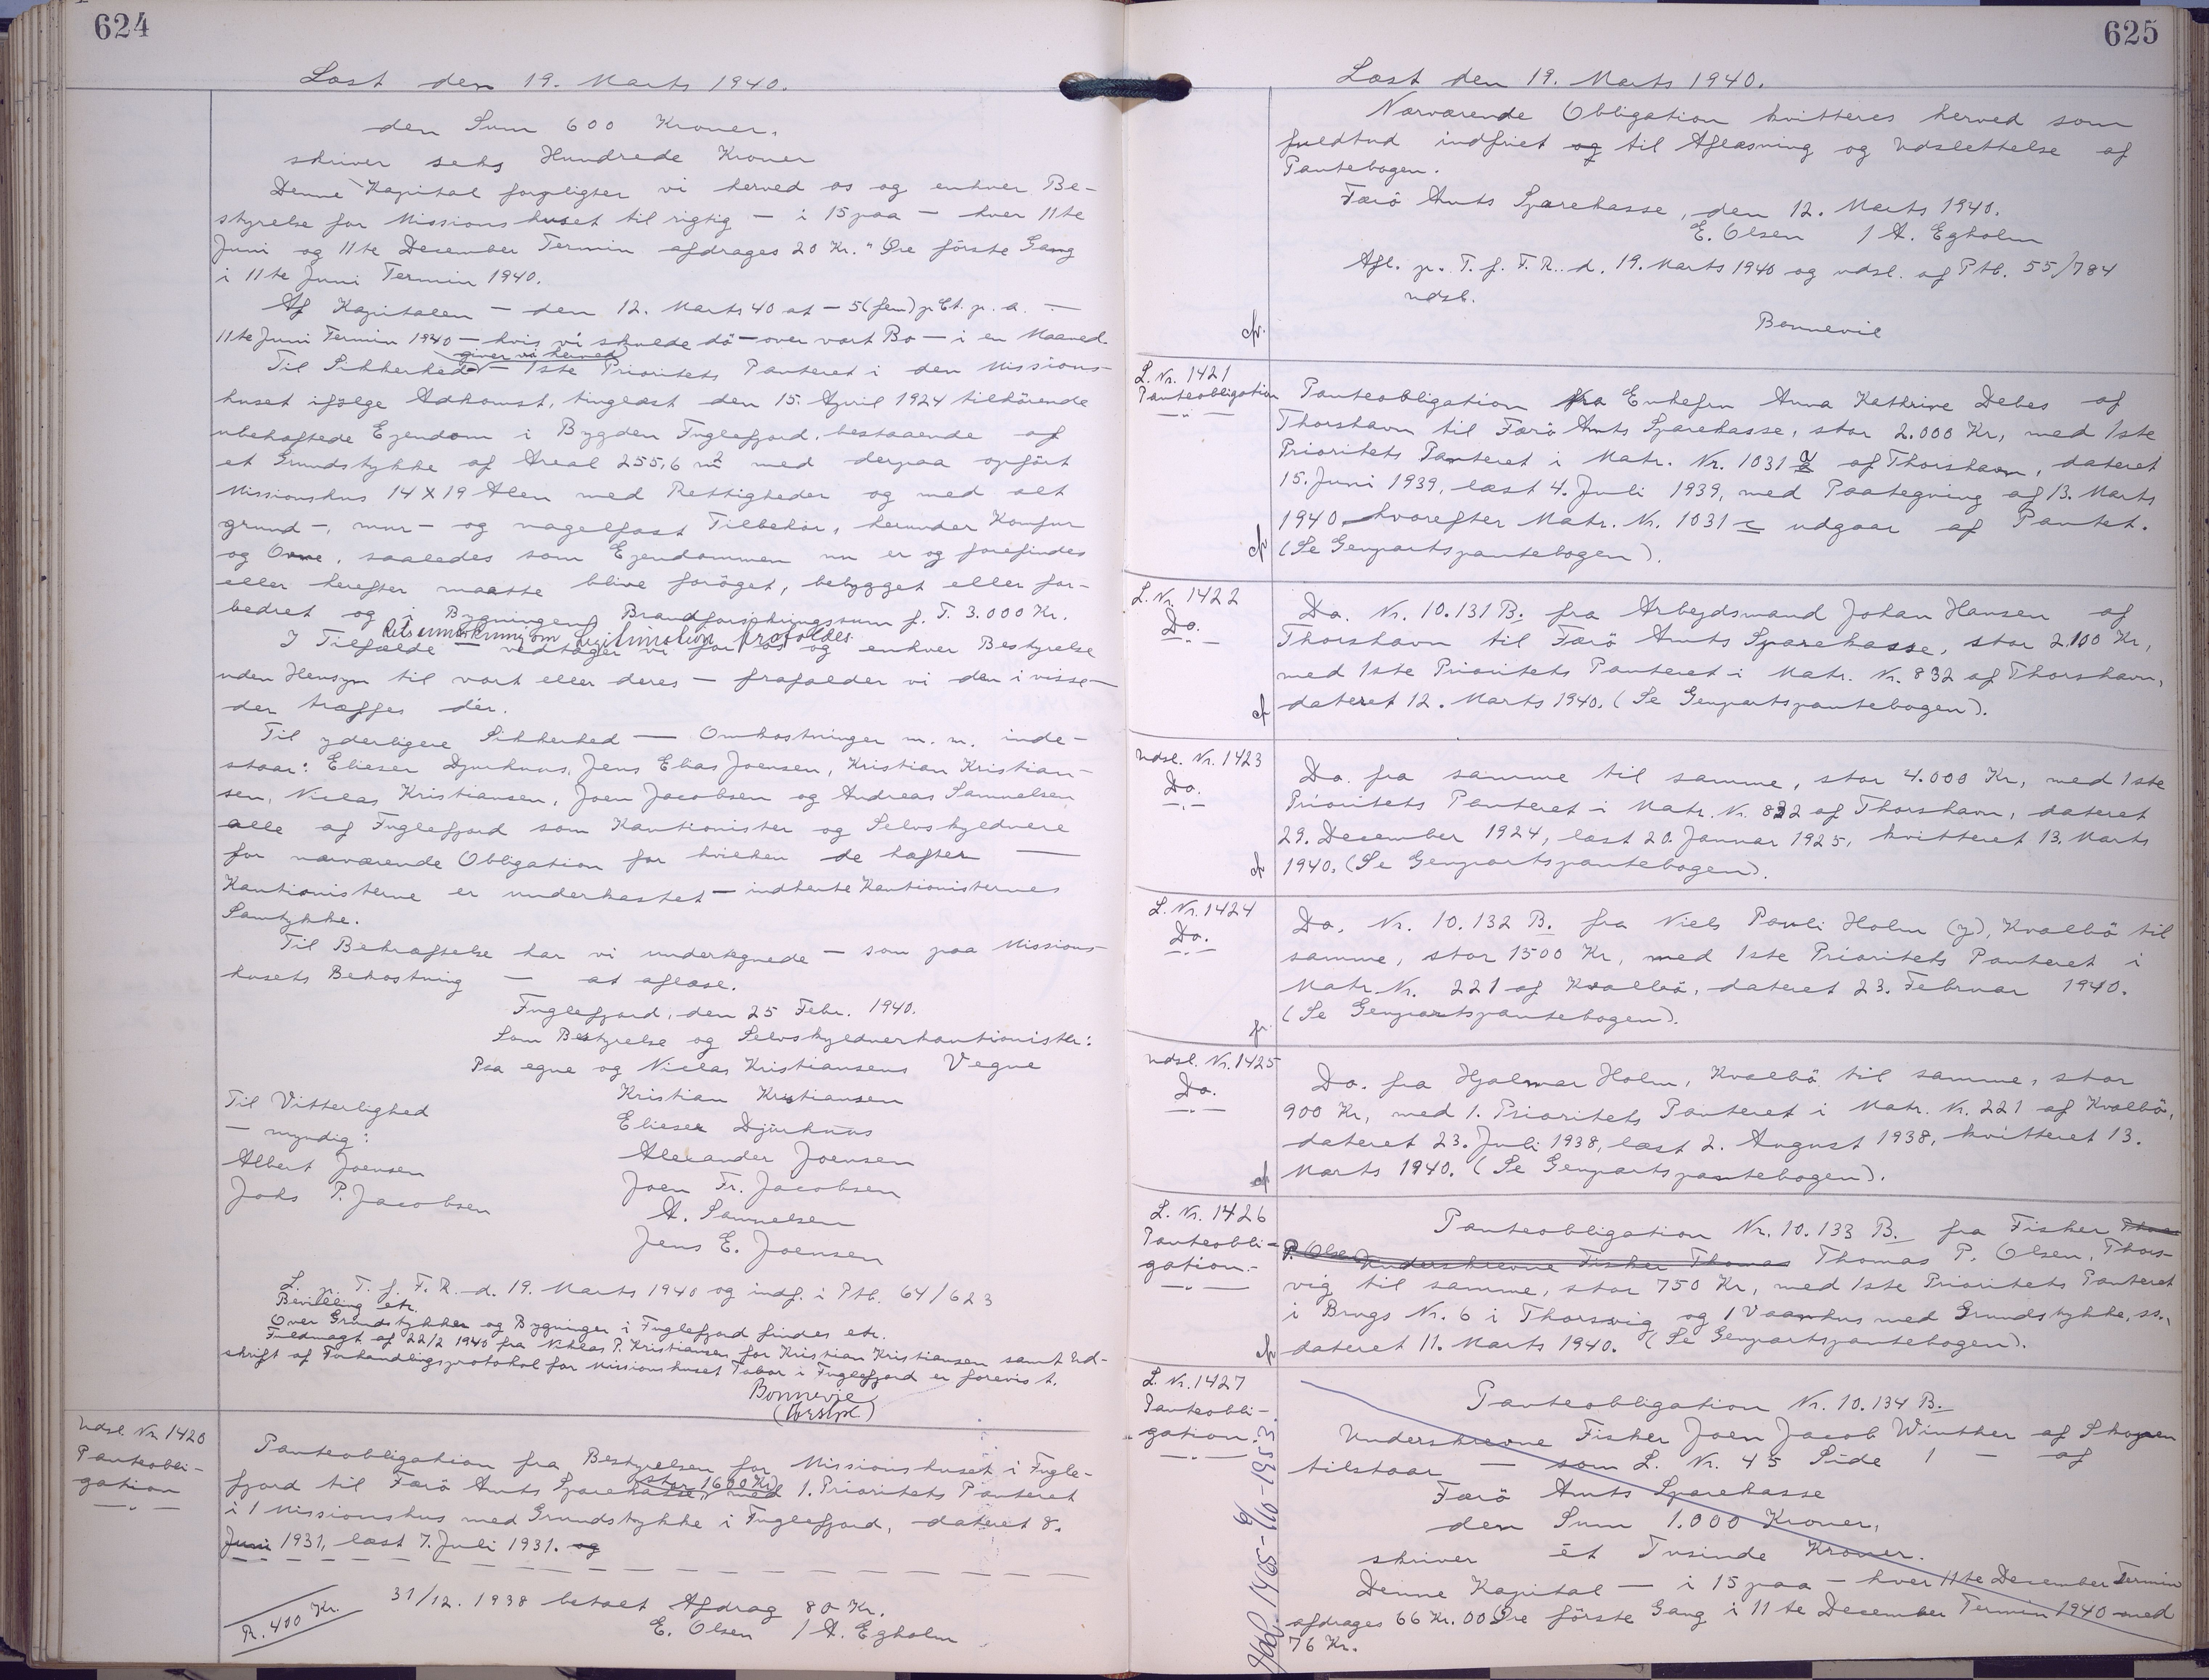 624
Læst den 19. Marts 1940.
den Sum 600 Kroner,
skriver seks Hundrede Kroner
Denne Kapital forpligter vi herved os og enhver Be-
styrelse for Missionshuset til rigtig — i 15 paa — hver 11te
Juni og 11te December Termin afdrages 20 Kr. " Øre förste Gang
i 11te Juni Termin 1940.
Af Kapitalen — den 12. Marts 40 at — 5 (fem) p Ct. p. a. —
11te Juni Termin 1940 — hvis vi skulde dö — over vort Bo — i en Maaned.
giver vi herved
Til Sikkerhed — 1ste Prioritets Panteret i den Missions-
huset ifölge Adkomst, tinglæst den 15. April 1924 tilhörende
ubehæftede Ejendom i Bygden Fuglefjord, bestaaende af
et Grundstykke af Areal 255,6 m² med derpaa opfört
Missionshus 14 X 19 Alen med Rettigheder og med alt
grund-, mur- og nagelfast Tilbehör, herunder Komfur
og Ovne, saaledes som Ejendommen nu er og forefindes
eller herefter maatte blive foröget, bebygget eller for-
bedret og i Bygningens Brandforsikringssum f. T. 3.000 Kr.
Retsanmærkning om Legitimation frafalder
I Tilfælde — vedtager vi for os og enhver Bestyrelse
uden Hensyn til vort eller deres — frafalder vi den i visse —
der træffes dér.
Til yderligere Sikkerhed — Omkostninger m. m. inde-
staar: Elieser Djurhuus, Jens Elias Joensen, Kristian Kristian-
sen, Niclas Kristiansen, Joen Jacobsen og Andreas Samuelsen
alle af Fuglefjord som Kautionister og Selvskyldnere
for nærværende Obligation for hvilken de hæfter —
Kautionisterne er underkastet — indhente Kautionisternes
Samtykke.
Til Bekræftelse har vi undertegnede — som paa Missions-
husets Bekostning — at aflæse.
Fuglefjord, den 25 Febr. 1940.
Som Bestyrelse og Selvskyldnerkautionister:
Paa egne og Niclas Kristiansens Vegne
Kristian Kristiansen
Elieser Djurhuus
Alexander Joensen
Joen Fr. Jacobsen
A. Samuelsen
Jens E. Joensen
Til Vitterlighed
— myndig:
Albert Joensen
Johs P. Jacobsen
L. p. T. f. F. R. d. 19. Marts 1940 og indf. i Ptb. 64/623
Bevilling etc.
Over Grundstykker og Bygninger i Fuglefjord findes etc.
Fuldmagt af 22/2 1940 fra Niklas P. Kristiansen for Kristian Kristiansen samt Ud-
skrift af Forhandlingsprotokol for Missionshuset Tabor i Fuglefjord er forevist.
Bonnevie
Udsl. Nr. 1420
Panteobli-
gation
Panteobligation fra Bestyrelsen for Missionshuset i Fugle-
fjord til Færö Amts Sparekasse, stor 1600 Kr, med 1. Prioritets Panteret
i 1 Missionshus med Grundstykke i Fuglefjord, dateret 8.
Juni 1931, læst 7. Juli 1931. og
R. 400 Kr.
31/12. 1938 betalt Afdrag 80 Kr.
E. Olsen / A. Egholm
625
Læst den 19. Marts 1940.
Nærværende Obligation kvitteres herved som
fuldtud indfriet og til Aflæsning og Udslettelse af
Pantebogen.
Færö Amts Sparekasse, den 12. Marts 1940.
E. Olsen / A. Egholm
Afl. p. T. f. F. R. d. 19. Marts 1940 og udsl. af Ptb. 55/784
udsl.
Bonnevie
L. Nr. 1421
Panteobligation
Panteobligation fra Enkefru Anna Kathrine Debes af
Thorshavn til Færö Amts Sparekasse, stor 2.000 Kr, med 1ste
Prioritets Panteret i Matr. Nr. 1031 af Thorshavn, dateret
15. Juni 1939, læst 4. Juli 1939, med Paategning af 13. Marts
1940 hvorefter Matr. Nr. 1031 c udgaar af Pantet.
(Se Genpartspantebogen).
L. Nr. 1422
Do.
Do. Nr. 10.131 B. fra Arbejdsmand Johan Hansen af
Thorshavn til Færö Amts Sparekasse, stor 2.100 Kr,
med 1ste Prioritets Panteret i Matr. Nr. 832 af Thorshavn,
dateret 12. Marts 1940. (Se Genpartspantebogen).
Udsl. Nr. 1423
Do.
Do. fra samme til samme, stor 4.000 Kr, med 1ste
Prioritets Panteret i Matr. Nr. 832 af Thorshavn, dateret
29. December 1924, læst 20. Januar 1925, kvitteret 13. Marts
1940. (Se Genpartspantebogen).
L. Nr. 1424
Do.
Do. Nr. 10.132 B. fra Niels Pauli Holm (y), Kvalbö til
samme, stor 1500 Kr, med 1ste Prioritets Panteret i
Matr. Nr. 221 af Kvalbö, dateret 23. Februar 1940.
(Se Genpartspantebogen).
Udsl. Nr. 1425
Do.
Do. fra Hjalmar Holm, Kvalbö til samme, stor
900 Kr, med 1. Prioritets Panteret i Matr. Nr. 221 af Kvalbö,
dateret 23. Juli 1938, læst 2. August 1938, kvitteret 13.
Marts 1940. (Se Genpartspantebogen).
L. Nr. 1426
Panteobli-
gation.
Panteobligation Nr. 10.133 B. fra Fisker Thomas
P. Olsen Underskrevne Fisker Thomas Thomas P. Olsen, Thors-
vig til samme, stor 750 Kr, med 1ste Prioritets Panteret
i Brugs Nr. 6 i Thorsvig og 1 Vaanhus med Grundstykke, ss.,
dateret 11. Marts 1940. (Se Genpartspantebogen).
L. Nr. 1427
Panteobli-
gation.
Panteobligation Nr. 10.134 B.
Underskrevne Fisker Joen Jacob Winther af Skopen
tilstaar — som L. Nr. 45 Side 1 — af
Færö Amts Sparekasse
den Sum 1.000 Kroner,
skriver ét Tusinde Kroner.
Denne Kapital — i 15 paa — hver 11te December Termin
afdrages 66 Kr. 00 Øre förste Gang i 11te December Termin 1940 med
76 Kr.